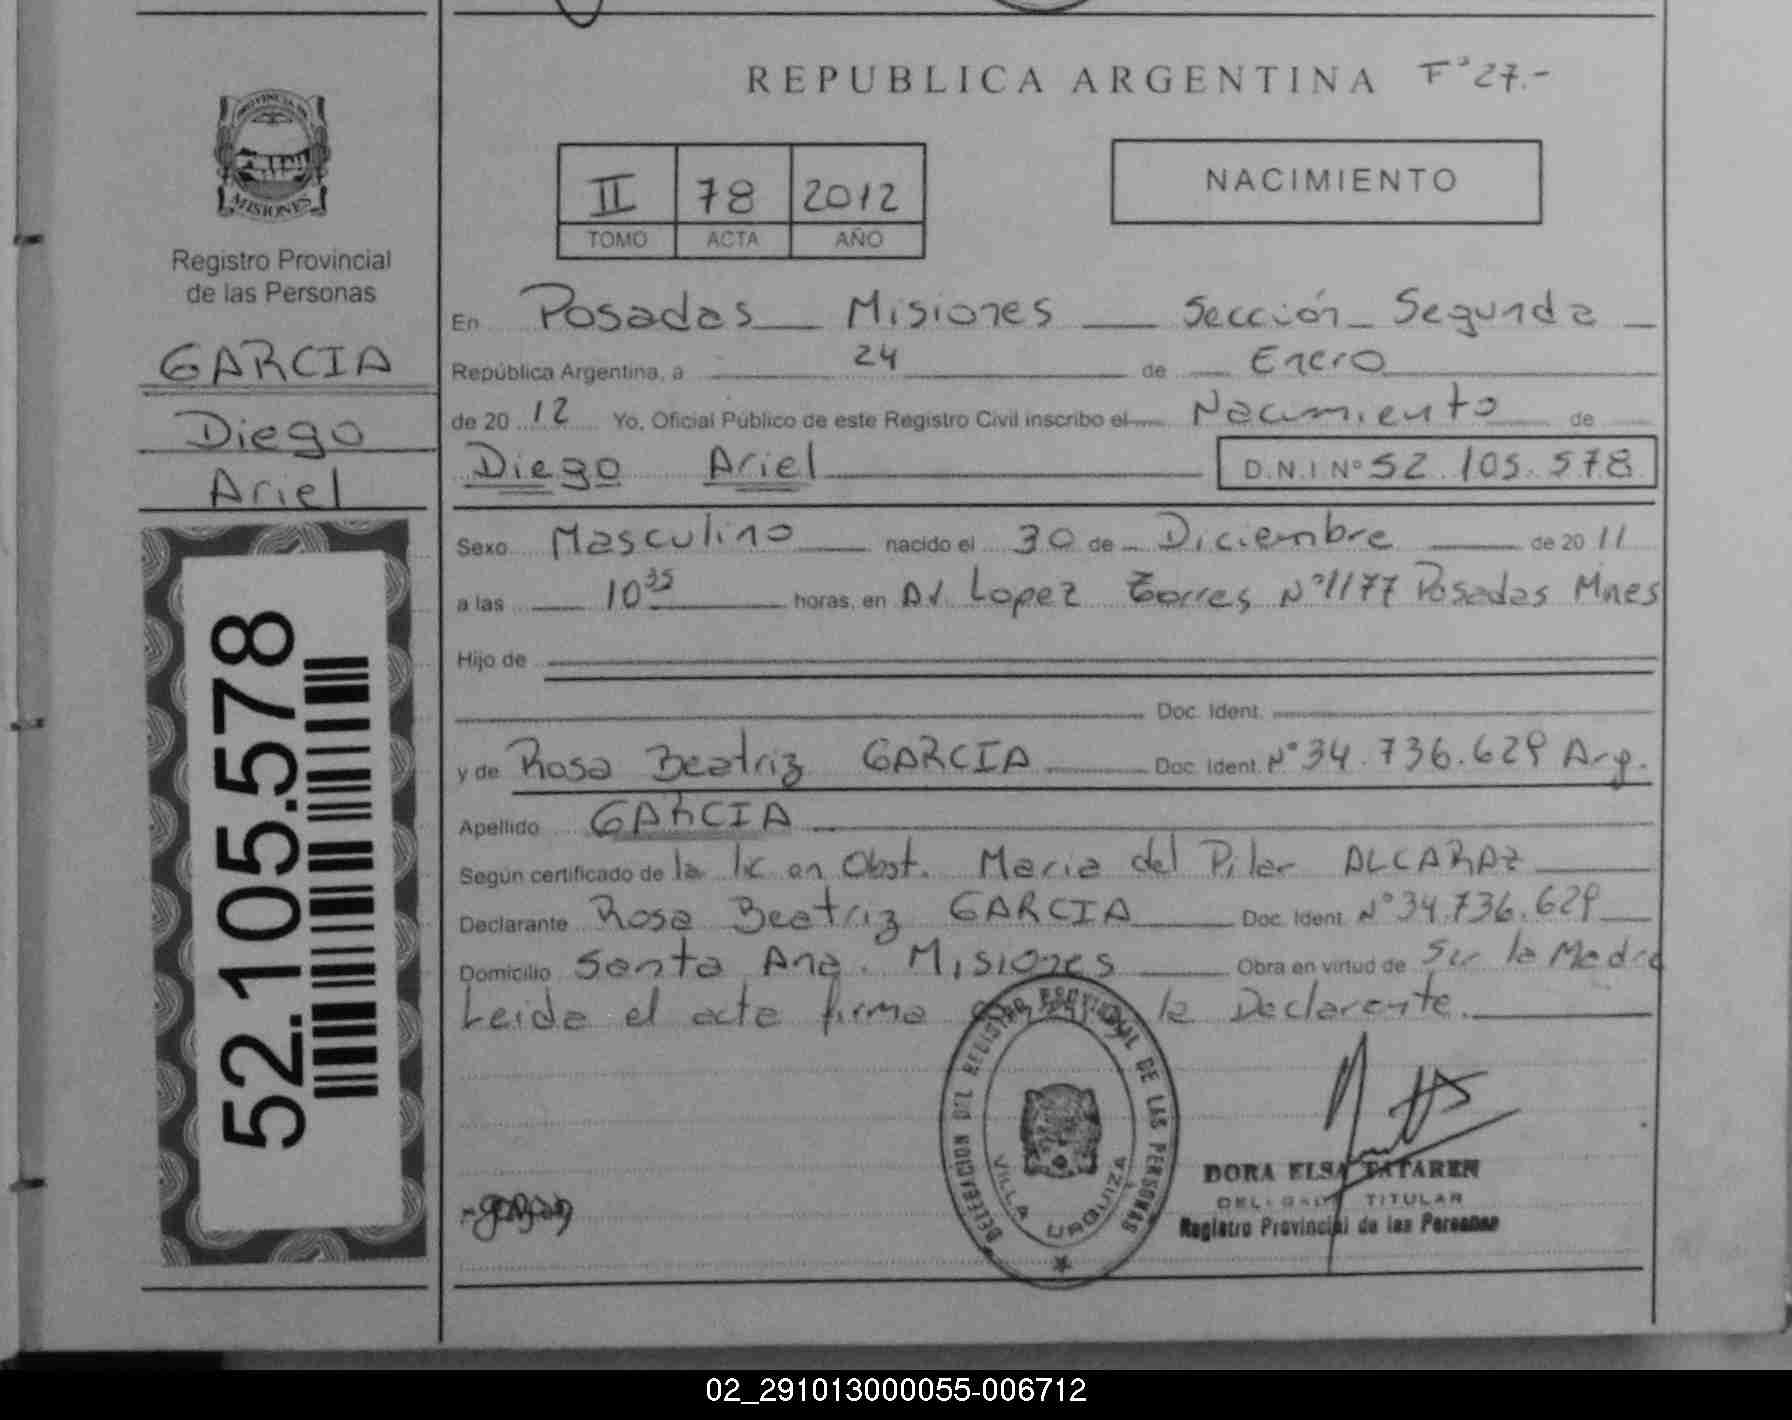 REPUBLICA ARGENTINA F°27.-
PROVINCIA DE
MISIONES
Registro Provincial
de las Personas
GARCIA
Diego
Ariel
52.105.578
II 78 2012
TOMO ACTA AÑO
NACIMIENTO
En Posadas Misiones Sección Segunda
República Argentina, a 24 de Enero
de 2012 Yo, Oficial Público de este Registro Civil inscribo el Nacimiento de
Diego Ariel D.N.I Nº 52.105.578
Sexo Masculino nacido el 30 de Diciembre de 2011
a las 10 35 horas, en Av. Lopez Torres Nº 1177 Posadas Mnes
Hijo de
Doc. Ident.
y de Rosa Beatriz GARCIA Doc. Ident. Nº 34.736.629 Arg.
Apellido GARCIA
Según certificado de la lic en Obst. Maria del Pilar ALCARAZ
Declarante Rosa Beatriz GARCIA Doc. Ident. Nº 34.736.629
Domicilio Santa Ana. Misiones Obra en virtud de Ser la Madre
Leida el acta firma la Declarante.
DELEGACION DEL REGISTRO PROVINCIAL DE LAS PERSONAS
VILLA URQUIZA
DORA ELSA TATAREN
DELEGADA TITULAR
Registro Provincial de las Personas
02_291013000055-006712